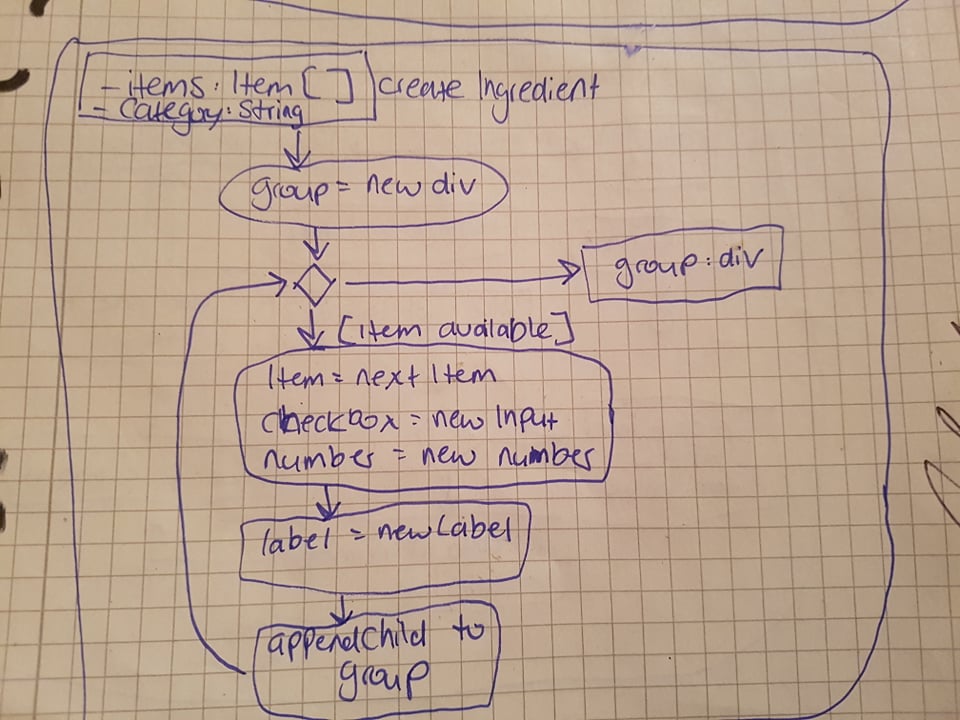 - items: Item[] create Ingredient
- Category: String
group = new div
group: div
[item available]
Item = next Item
checkbox = new Input
number = new number
label = new Label
appendChild to
group